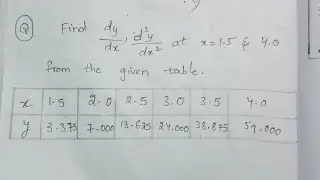 Q Find dy/dx, d²y/dx² at x=1.5 & 4.0
from the given table.
x 1.5 2.0 2.5 3.0 3.5 4.0
y 3.375 7.000 13.625 24.000 38.875 59.000